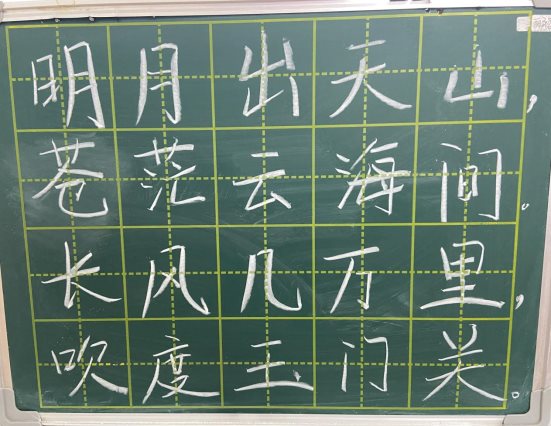 明月出天山,
苍茫云海间。
长风几万里,
吹度玉门关。